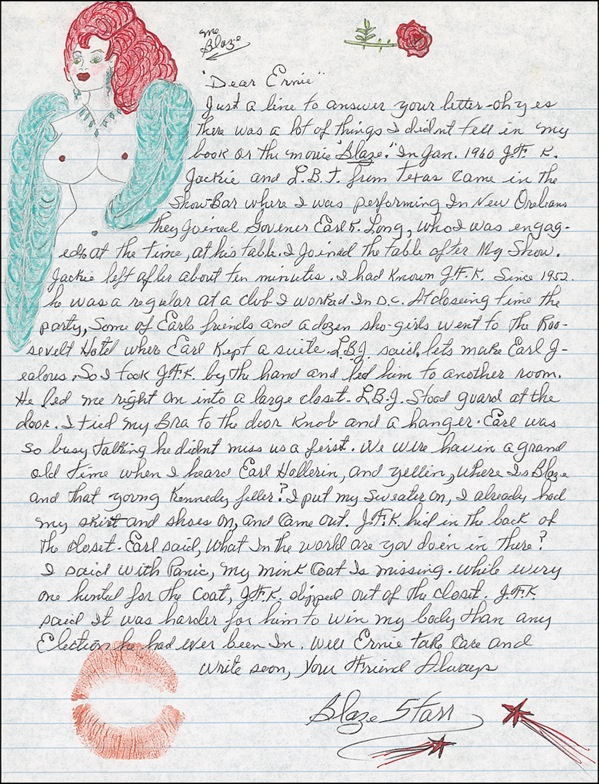 me
Blaze
"Dear Ernie"
Just a line to answer your letter-oh yes
there was a lot of things I didnt tell in my
book or the movie "Blaze." In Jan. 1960 J.F.K.
Jackie and L.B.J. from Texas came in the
Show-Bar where I was performing In New Orleans
they Joined Govener Earl K. Long, who I was engag-
ed at the time, at his table. I Joined the table after My Show.
Jackie left after about ten minutes. I had Known J.F.K. Since 1952.
he was a regular at a club I worked In D.C. At closing time the
party, Some of Earls friends and a dozen sho-girls went to the Roo-
sevelt Hotel wher Earl Kept a suite. L.B.J. said, lets make Earl J-
ealous, So I took J.F.K. by the hand and led him to another room.
He led me right on into a large closet. L.B.J. Stood guard at the
door. I tied my Bra to the door Knob and a hanger. Earl was
so busy talking he didnt miss us a first. We were havin a grand
old time when I heard Earl Hollerin, and yellin, where Is Blaze
and that young Kennedy feller? I put my Sweater on, I already had
my skirt and shoes on, and Came out. J.F.K. hid in the back of
the closet. Earl said, What In the world are you doein in there?
I said with Panic, my mink Coat Is missing. While every
one hunted for the Coat, J.F.K. slipped out of the closet. J.F.K.
said It was harder for him to win my body than any
Election he had ever been In. Well Ernie take care and
write soon, Your Friend Always
Blaze Starr